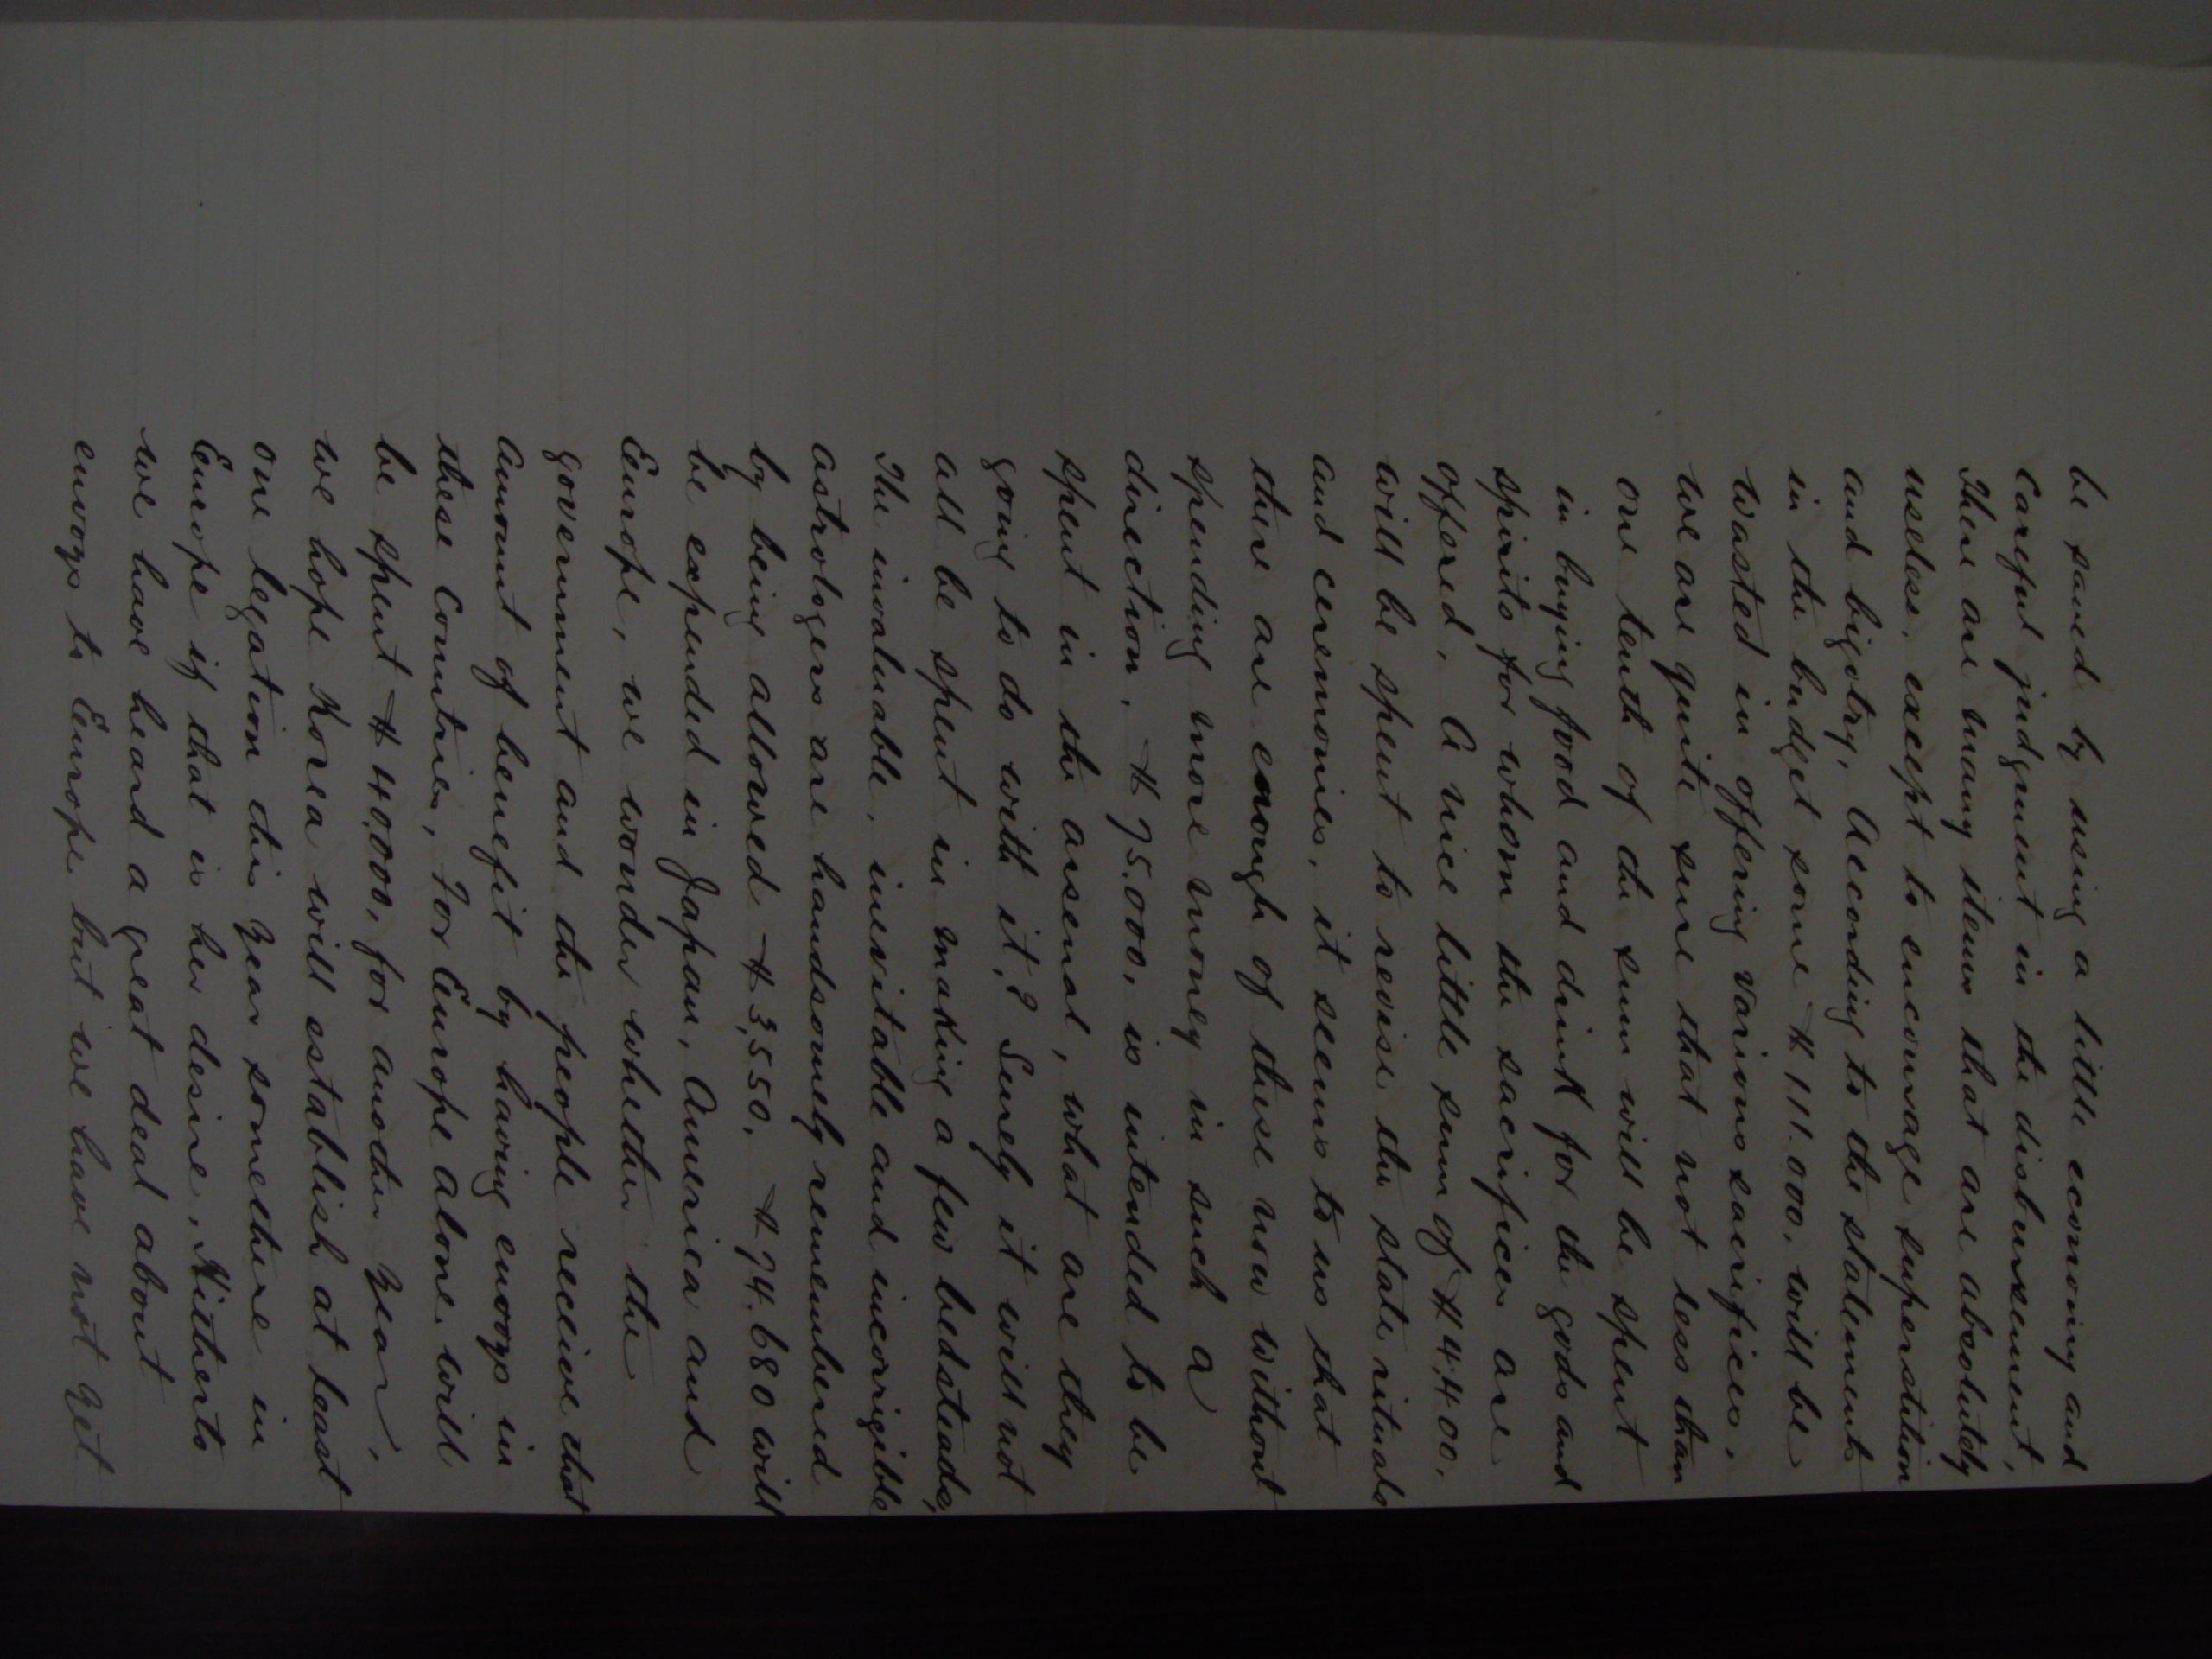 be saved by using a little economy and
careful judgment in the disbursement.
There are many items that are absolutely
useless, except to encourage superstition
and bigotry. According to the statements
in the budget some $111.000. will be
wasted in offering various sacrifices.
we are quite sure that not less than
one tenth of the sum will be spent
in buying food and drink for the gods and
spirits for whom the sacrifices are
offered. A nice little sum of $44.400.
will be spent to revise the state rituals
and ceremonies, it seems to us that
there are enough of these now without
spending more money in such a
direction. $75.000. is intended to be
spent in the arsenal, what are they
going to do with it? Surely it will not
all be spent in making a few bedsteads,
The invaluable, inevitable and incorrigible
astrologers are handsomely remembered
by being allowed $3,550. $74.680 will
be expended in Japan, America and
Europe, we wonder whether the
government and the people receive that
amount of benefit by having envoys in
these countries, For Europe alone. will
be spent $40,000, for another year,
we hope Korea will establish at least
one legation this year somewhere in
Europe if that is her desire. Hitherto
we have heard a great deal about
envoys to Europe but we have not yet